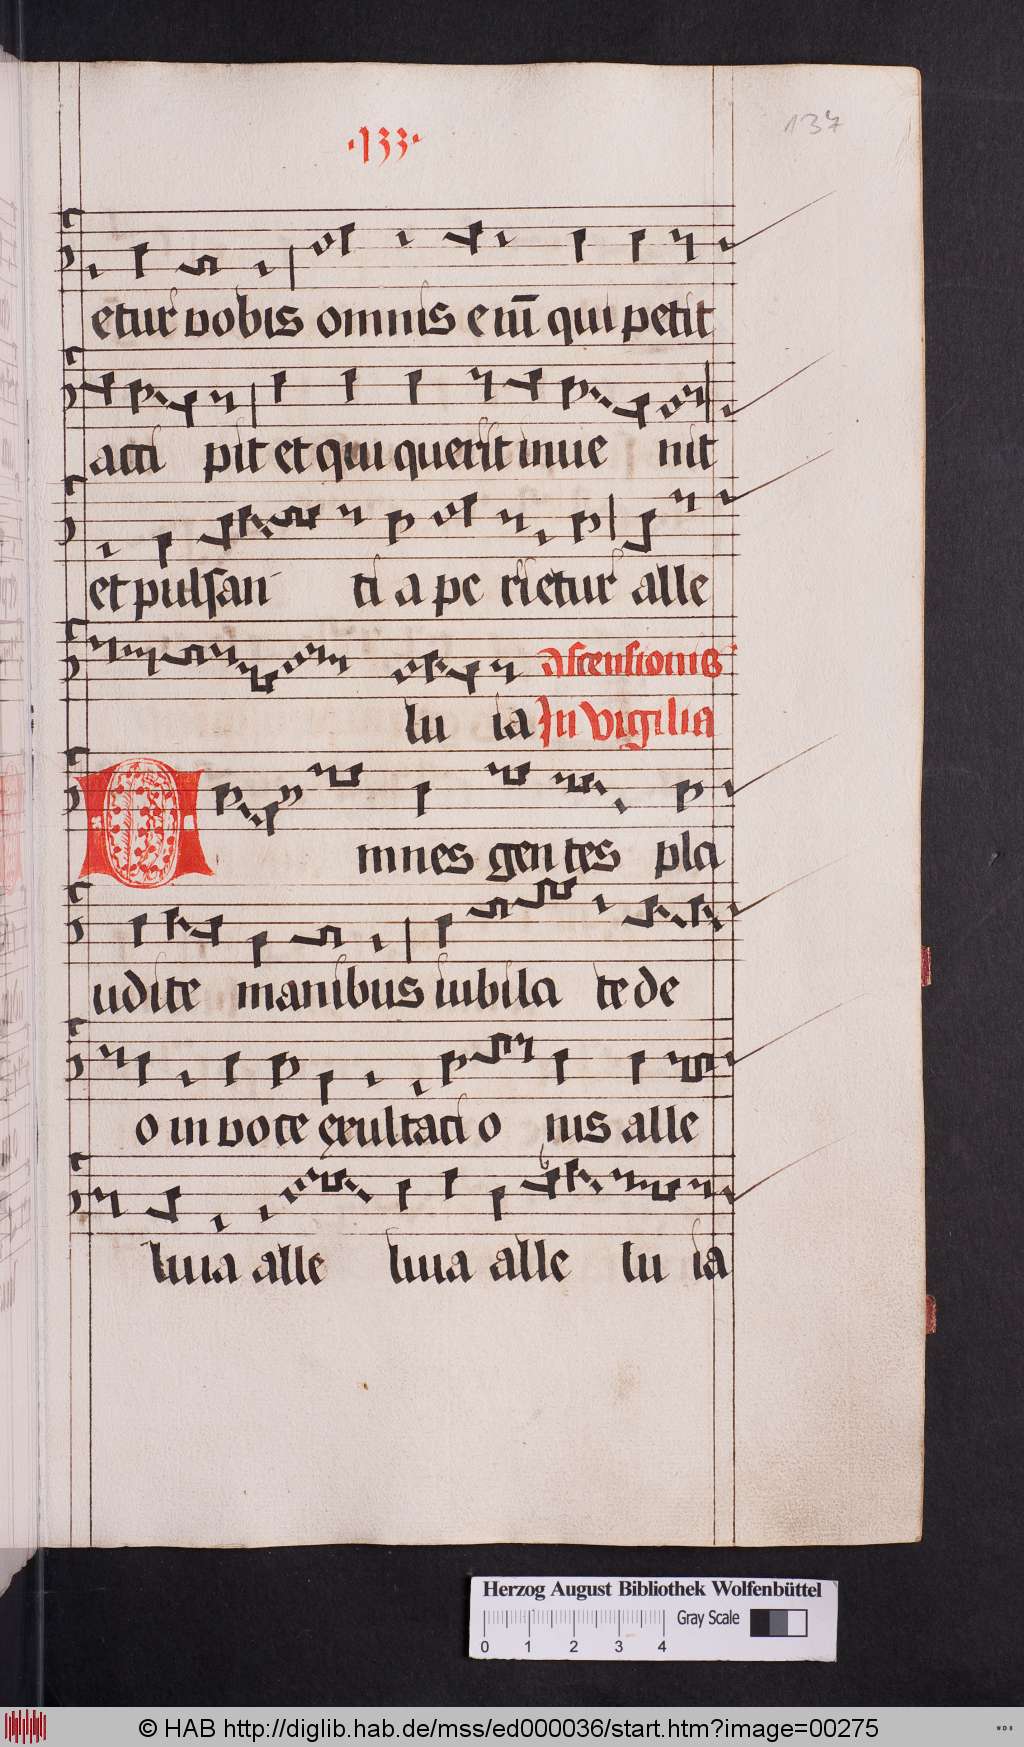 ·133·
137
etur vobis omnis eim̅ qui petit
acci pit et qui querit inue nit
et pulsan ti a pe rietur alle
Ascensionis
lu ia In vigilia
Omnes gentes pla
udite manibus iubila te de
o in voce exultaci o nis alle
luia alle luia alle lu ia
Herzog August Bibliothek Wolfenbüttel
Gray Scale
0 1 2 3 4
© HAB http://diglib.hab.de/mss/ed000036/start.htm?image=00275